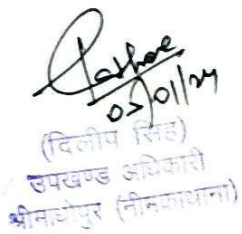 05/01/24
(दिलीप सिंह)
उपखण्ड अधिकारी
श्रीमाधोपुर (नीमकाथाना)